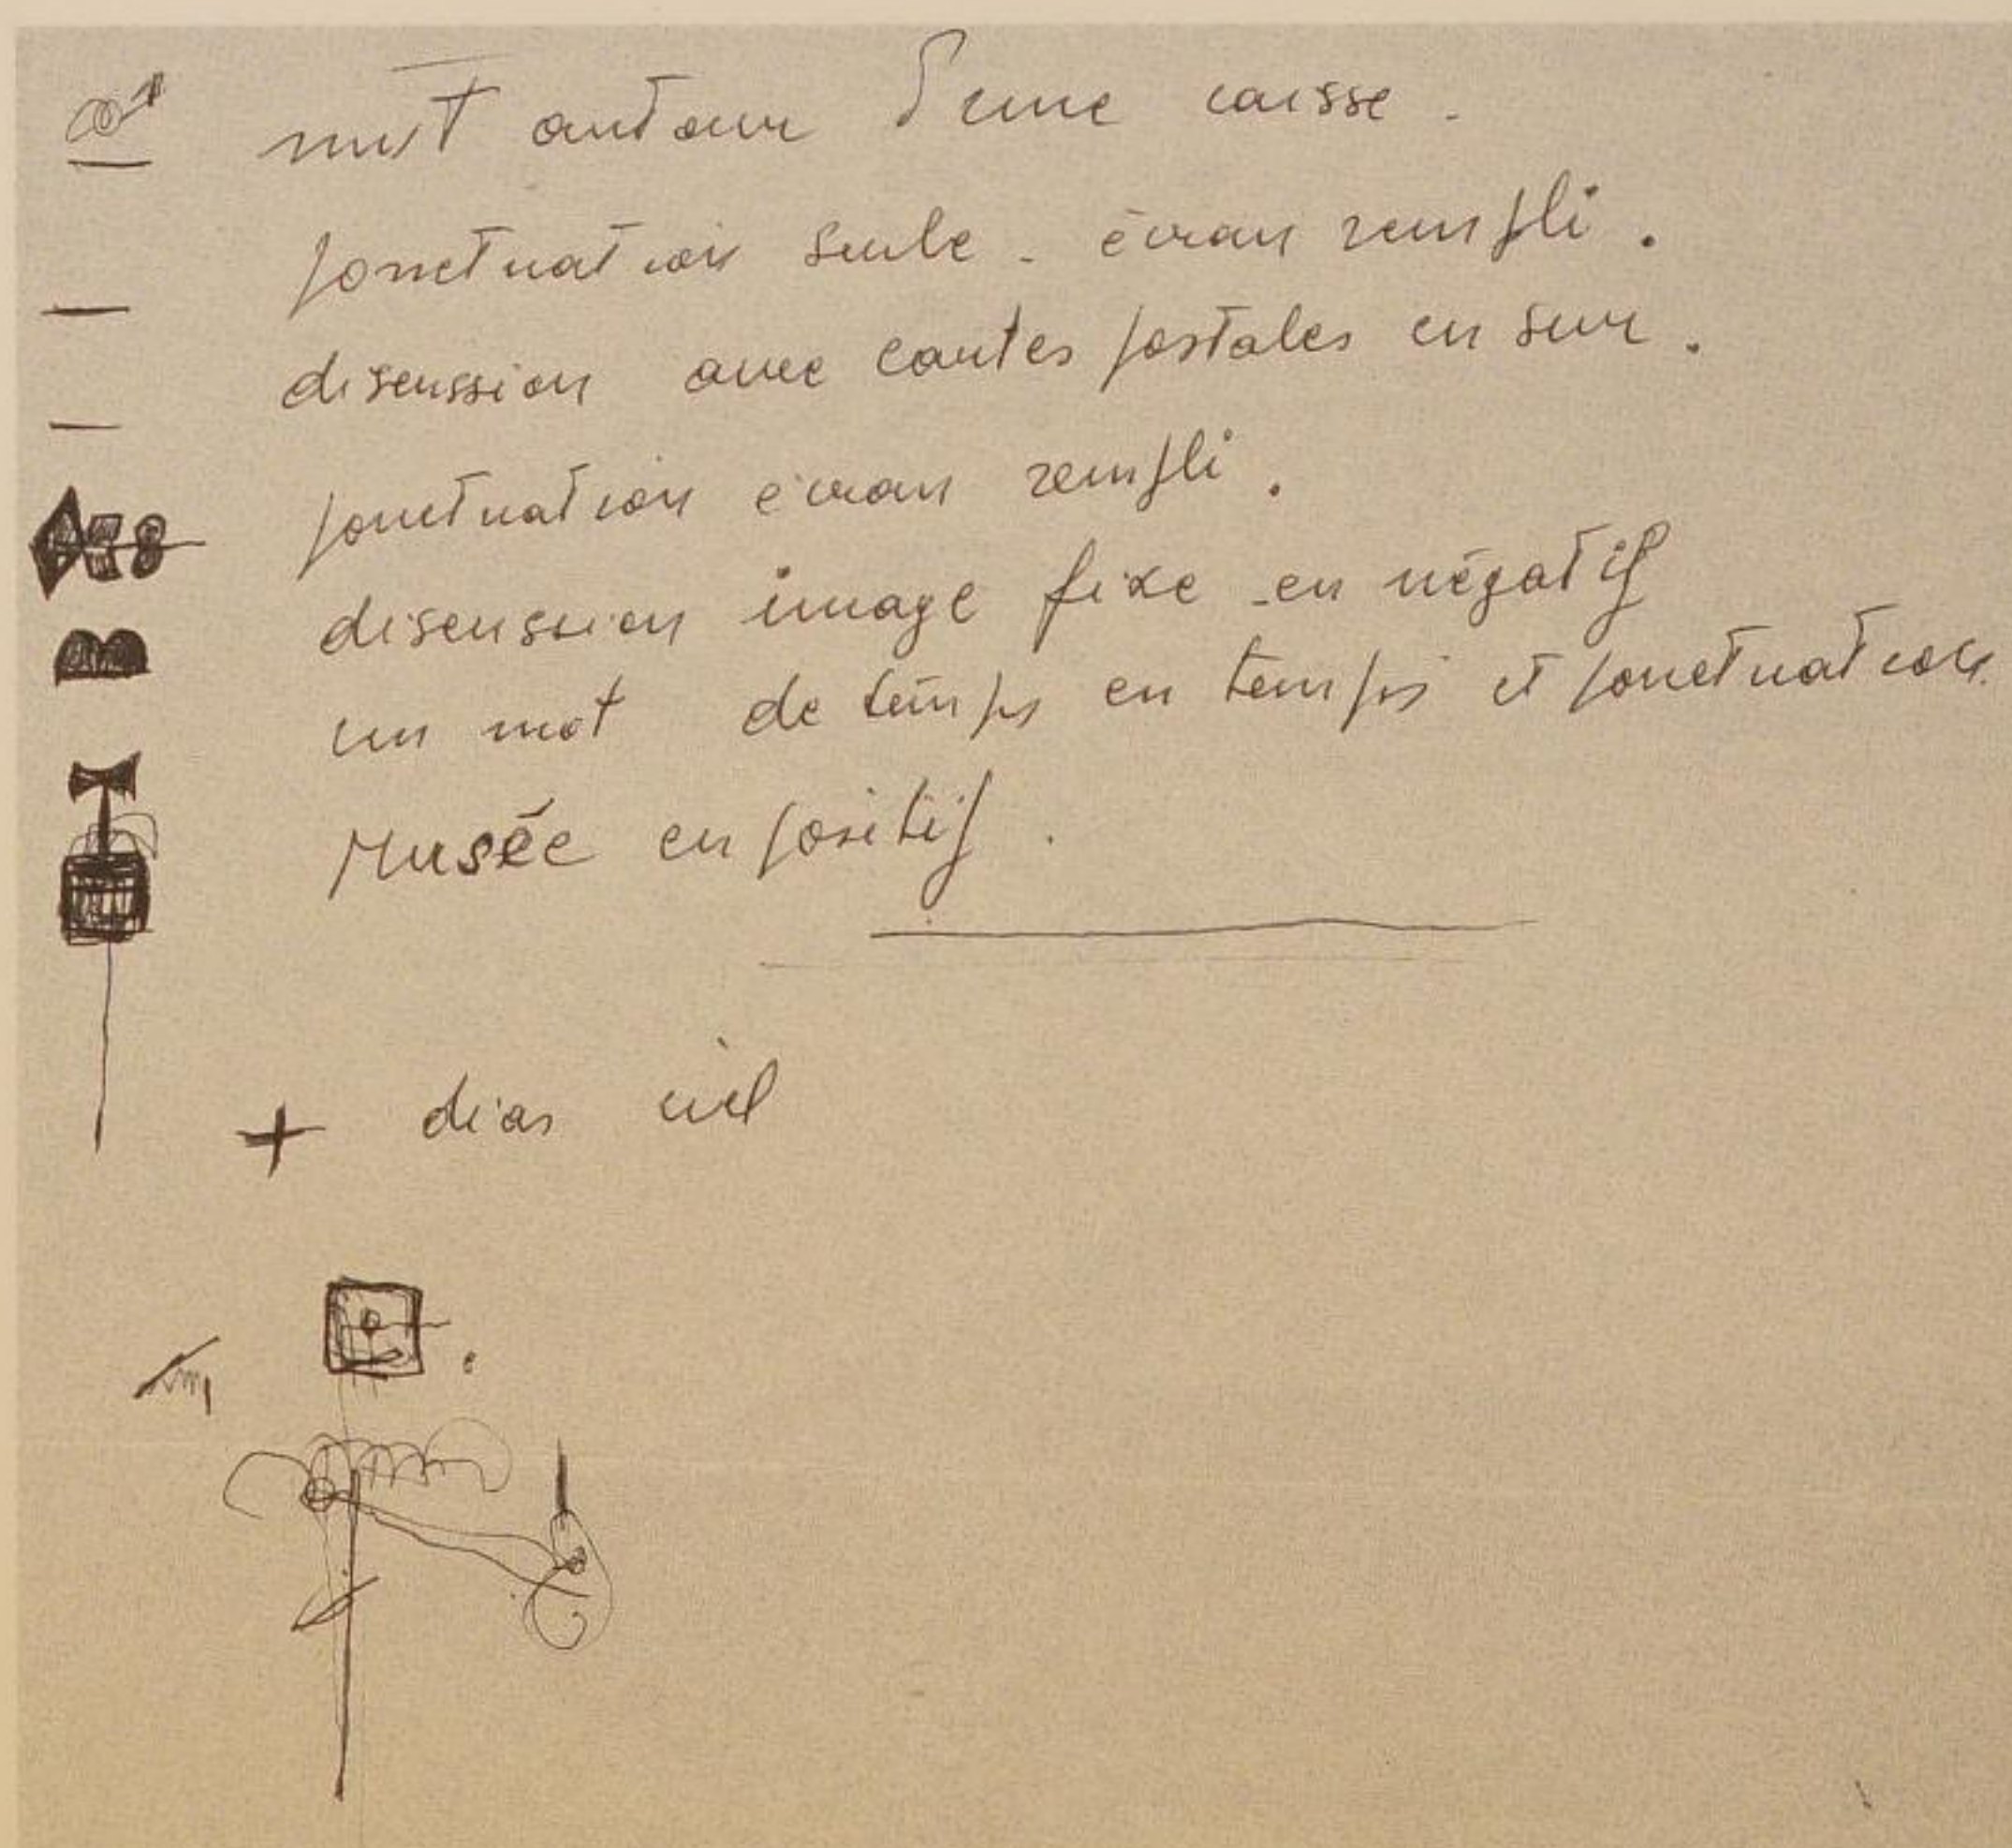 nuit autour d'une caisse.
ponctuation seule - écran rempli.
discussion avec cartes postales en sur.
ponctuation écran rempli.
discussion image fixe en négatif
un mot de temps en temps et ponctuation.
Musée en positif.
+ dias ciel